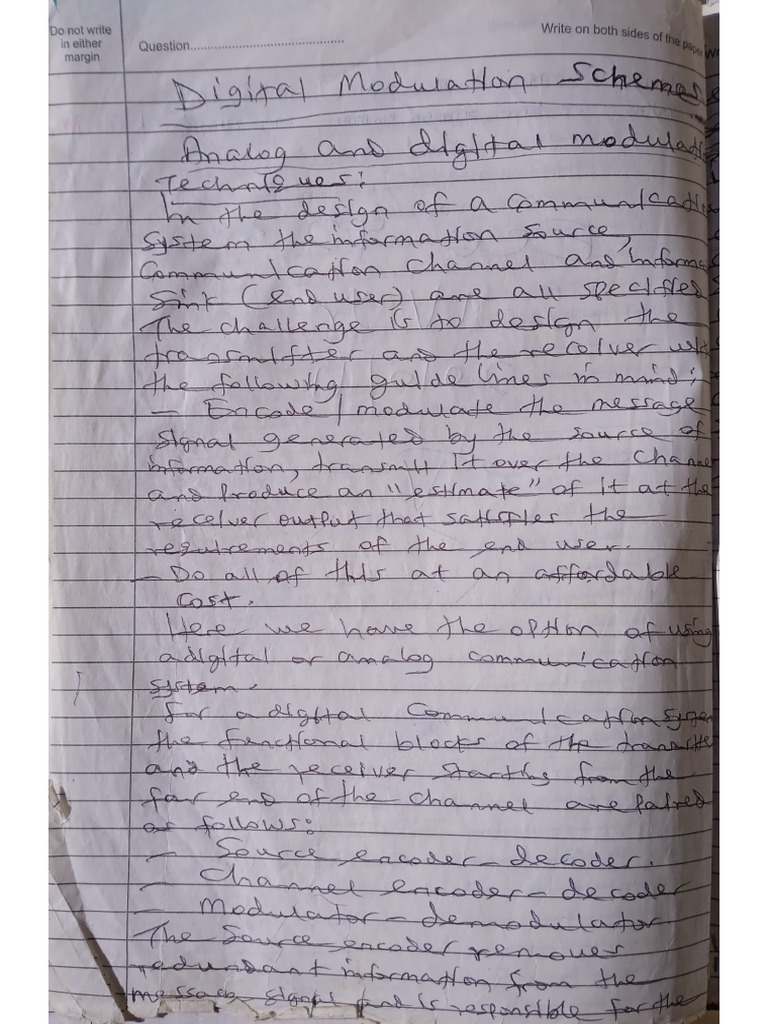 Do not write
in either
margin
Question
Write on both sides of the paper
Digital Modulation Schemes
Analog and digital modulati
Techniques:
In the design of a Communicati
system the information source,
Communication channel and informa
Sink (end user) are all specified
The challenge is to design the
transmitter and the receiver with
the following guide lines in mind;
- Encode/modulate the message
signal generated by the source of
information, transmitt it over the Channe
and Produce an "estimate" of it at the
receiver output that satisfies the
requirements of the end user.
- Do all of this at an affordable
cost.
Here we have the option of using
a digital or analog communication
system.
For a digital Communication System
the functional blocks of the transmitte
and the receiver starting from the
far end of the channel are paired
as follows:
- Source encoder-decoder.
- Channel encoder-decoder
- Modulator-demodulator
The Source encoder removes
redundant information from the
message signal and is responsible for the